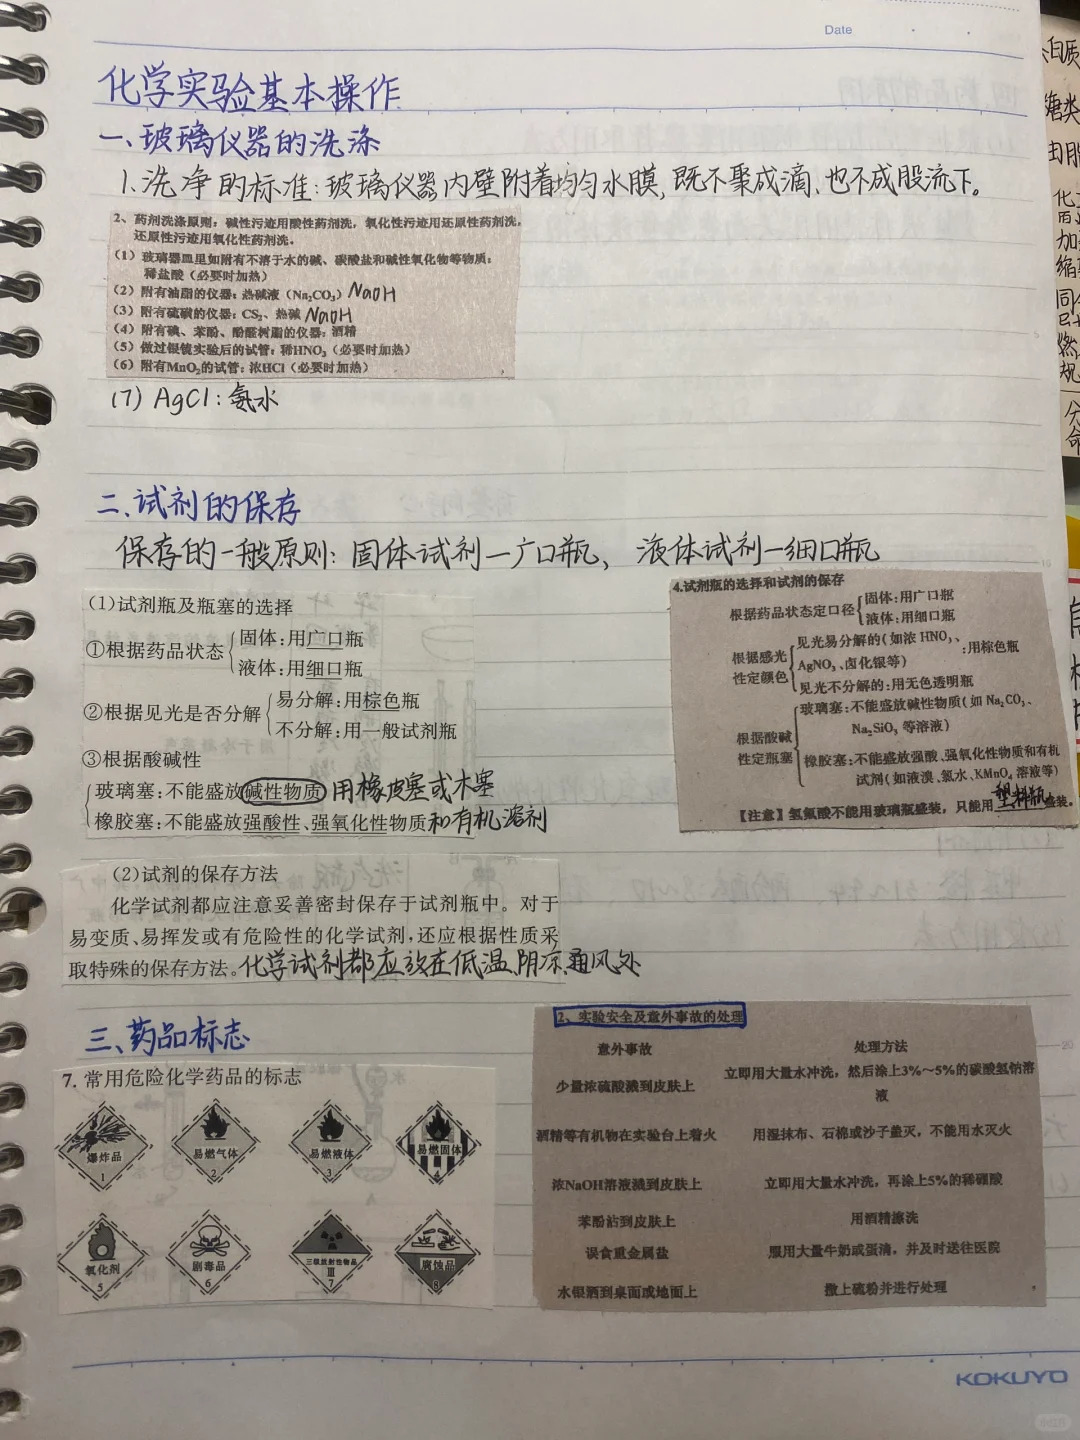 Date
化学实验基本操作
一、玻璃仪器的洗涤
1.洗净的标准:玻璃仪器内壁附着均匀水膜,既不聚成滴、也不成股流下。
2、药剂洗涤原则:碱性污迹用酸性药剂洗,氧化性污迹用还原性药剂洗,
还原性污迹用氧化性药剂洗。
(1)玻璃器皿里如附有不溶于水的碱、碳酸盐和碱性氧化物等物质:
稀盐酸(必要时加热)
(2)附有油脂的仪器:热碱液(Na₂CO₃)NaOH
(3)附有硫磺的仪器:CS₂、热碱 NaOH
(4)附有碘、苯酚、酚醛树脂的仪器:酒精
(5)做过银镜实验后的试管:稀HNO₃(必要时加热)
(6)附有MnO₂的试管:浓HCl(必要时加热)
(7)AgCl:氨水
二.试剂的保存
保存的一般原则:固体试剂—广口瓶、液体试剂—细口瓶
(1)试剂瓶及瓶塞的选择
①根据药品状态
固体:用广口瓶
液体:用细口瓶
②根据见光是否分解
易分解:用棕色瓶
不分解:用一般试剂瓶
③根据酸碱性
玻璃塞:不能盛放碱性物质 用橡皮塞或木塞
橡胶塞:不能盛放强酸性、强氧化性物质和有机溶剂
4.试剂瓶的选择和试剂的保存
根据药品状态定口径
固体:用广口瓶
液体:用细口瓶
根据感光
性定颜色
见光易分解的(如浓 HNO₃、
AgNO₃、卤化银等)
:用棕色瓶
见光不分解的:用无色透明瓶
根据酸碱
性定瓶塞
玻璃塞:不能盛放碱性物质(如 Na₂CO₃、
Na₂SiO₃ 等溶液)
橡胶塞:不能盛放强酸、强氧化性物质和有机
试剂(如液溴、氯水、KMnO₄ 溶液等)
【注意】氢氟酸不能用玻璃瓶盛装,只能用塑料瓶盛装。
(2)试剂的保存方法
化学试剂都应注意妥善密封保存于试剂瓶中。对于
易变质、易挥发或有危险性的化学试剂,还应根据性质采
取特殊的保存方法。化学试剂都应放在低温、阴凉、通风处
三、药品标志
7. 常用危险化学药品的标志
爆炸品
1
易燃气体
2
易燃液体
3
易燃固体
4
氧化剂
5
剧毒品
6
三级放射性物品
III
7
腐蚀品
8
2、实验安全及意外事故的处理
意外事故 处理方法
少量浓硫酸溅到皮肤上 立即用大量水冲洗,然后涂上3%~5%的碳酸氢钠溶
液
酒精等有机物在实验台上着火 用湿抹布、石棉或沙子盖灭,不能用水灭火
浓NaOH溶液溅到皮肤上 立即用大量水冲洗,再涂上5%的稀硼酸
苯酚沾到皮肤上 用酒精擦洗
误食重金属盐 服用大量牛奶或蛋清,并及时送往医院
水银洒到桌面或地面上 撒上硫粉并进行处理
KOKUYO